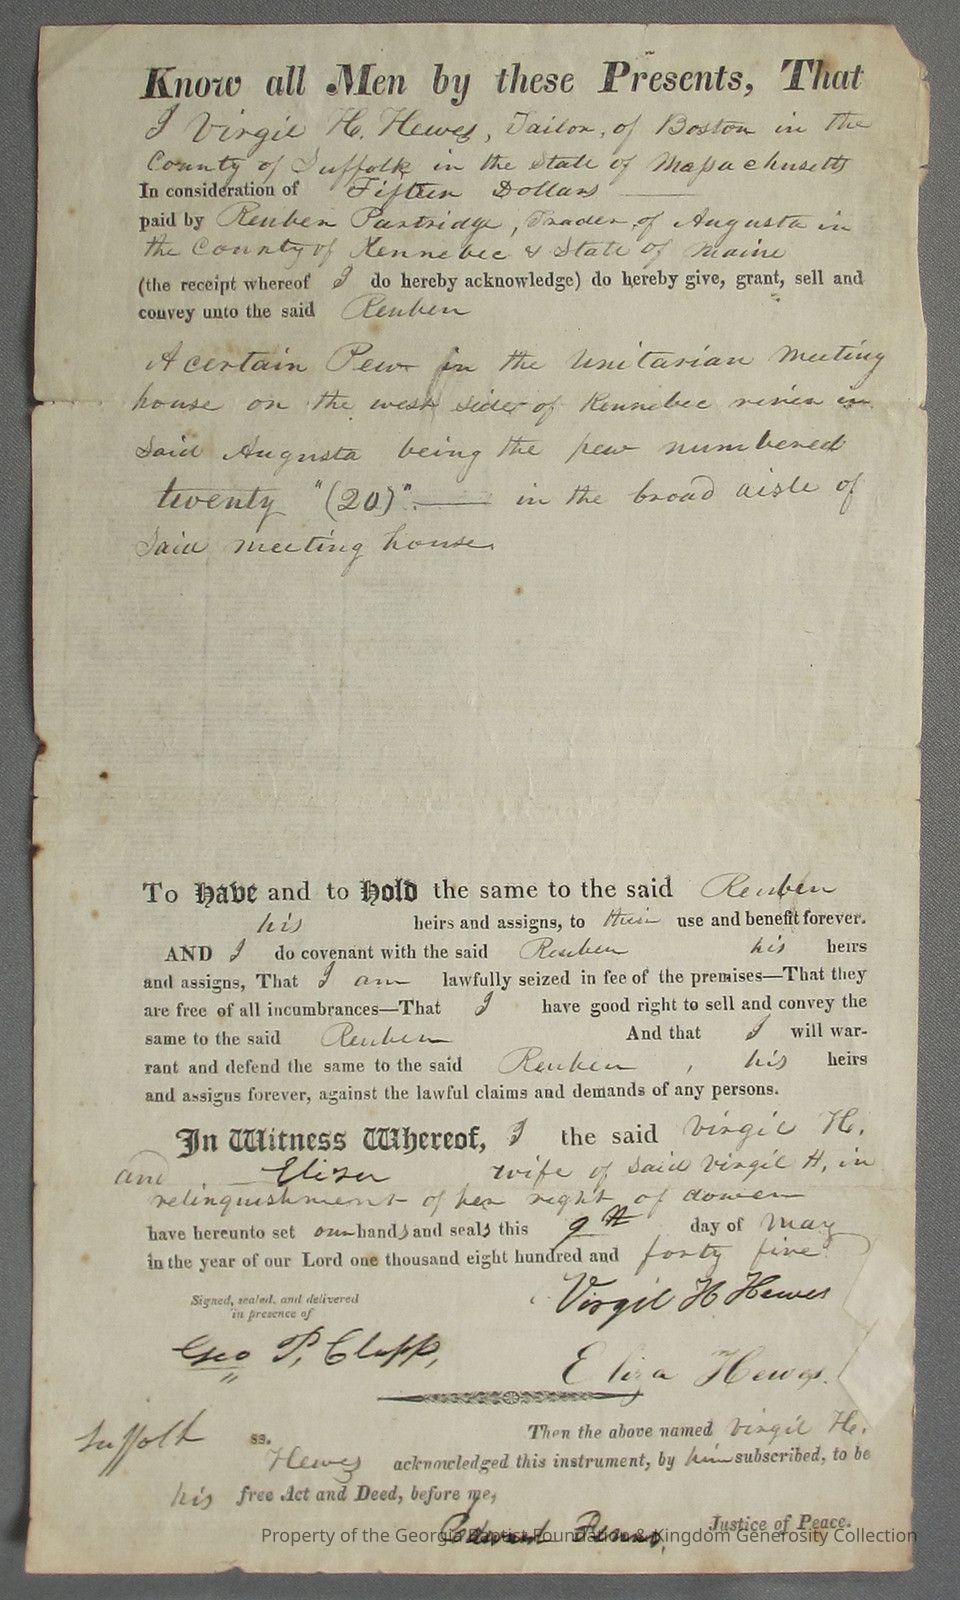 Know all Men by these Presents, That
I Virgil H. Hewes, Tailor, of Boston in the
County of Suffolk in the State of Massachusetts
In consideration of Fifteen Dollars
paid by Reuben Partridge, Trader, of Augusta in
the County of Kennebec & State of Maine
(the receipt whereof I do hereby acknowledge) do hereby give, grant, sell and
convey unto the said Reuben
A certain Pew in the Unitarian Meeting
house on the west side of Kennebec river in
Said Augusta being the pew numbered
twenty "(20)" in the broad aisle of
Said meeting house.
To Have and to Hold the same to the said Reuben
his heirs and assigns, to their use and benefit forever.
AND I do covenant with the said Reuben his heirs
and assigns, That I am lawfully seized in fee of the premises—That they
are free of all incumbrances—That I have good right to sell and convey the
same to the said Reuben And that I will war-
rant and defend the same to the said Reuben, his heirs
and assigns forever, against the lawful claims and demands of any persons.
In Witness Whereof, I the said Virgil H.
and Eliza wife of said Virgil H, in
relinquishment of her right of dower
have hereunto set our hands and seals this 9th day of May
in the year of our Lord one thousand eight hundred and forty five
Signed, sealed, and delivered
in presence of
Virgil H Hewes
Geo P. Clapp,
Eliza Hewes.
Suffolk ss. Then the above named Virgil H.
Hewes acknowledged this instrument, by him subscribed, to be
his free Act and Deed, before me,
Edward Justice of Peace.
Property of the Georgia Baptist Foundation & Kingdom Generosity Collection